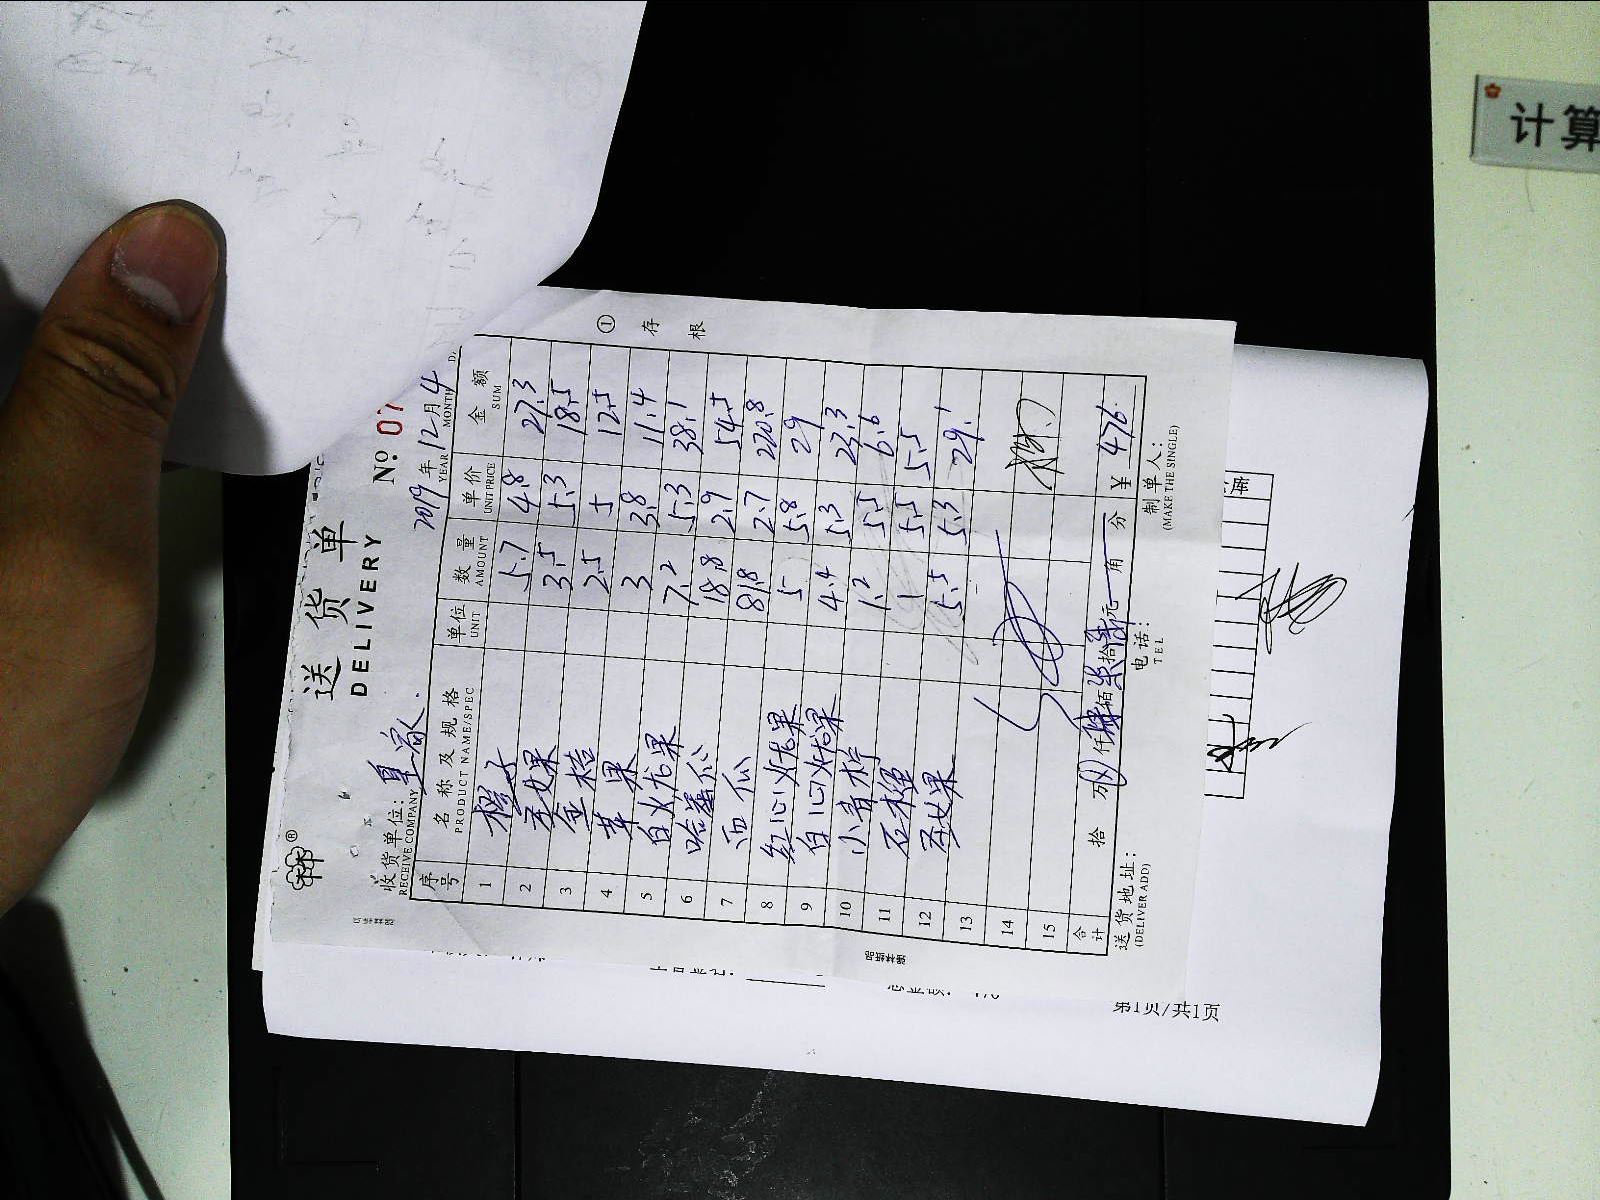 送货单
DELIVERY
No 07
收货单位: 皇家
RECEIVE COMPANY
2019年12月4
YEAR MONTH
序号 名称及规格 单位 数量 单价 金额
PRODUCT NAME/SPEC UNIT AMOUNT UNIT PRICE SUM
1 橙子 5.7 4.8 27.3
2 圣女果 3.5 5.3 18.5
3 金桔 2.5 5 12.5
4 苹果 3 3.8 11.4
5 白火龙果 7.2 5.3 38.1
6 哈蜜瓜 18.8 2.9 54.5
7 西瓜 81.8 2.7 220.8
8 红心火龙果 5 5.8 29
9 白心火龙果 4.4 5.3 23.3
10 小青柠 1.2 5.5 6.6
11 石榴 1 5.5 5.5
12 圣女果 5.5 5.3 29.1
13
14
15
合计 拾 万 仟肆佰柒拾 元 角 分 ¥ 476.
送货地址:
(DELIVER ADD)
电话:
TEL
制单人:
(MAKE THE SINGLE)
① 存根
第1页/共1页
计算